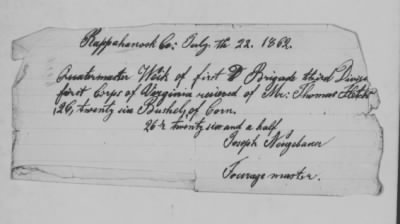 Rappahanock Co: July. th 22. 1862.
Quatermaster of first D Brigade third Divis
first Corps of Verginia recieved of Mr: Thomas
26, twenty six Bushels, of Corn.
26½ twenty six and a half
Joseph Neugebauer
Fourage master.